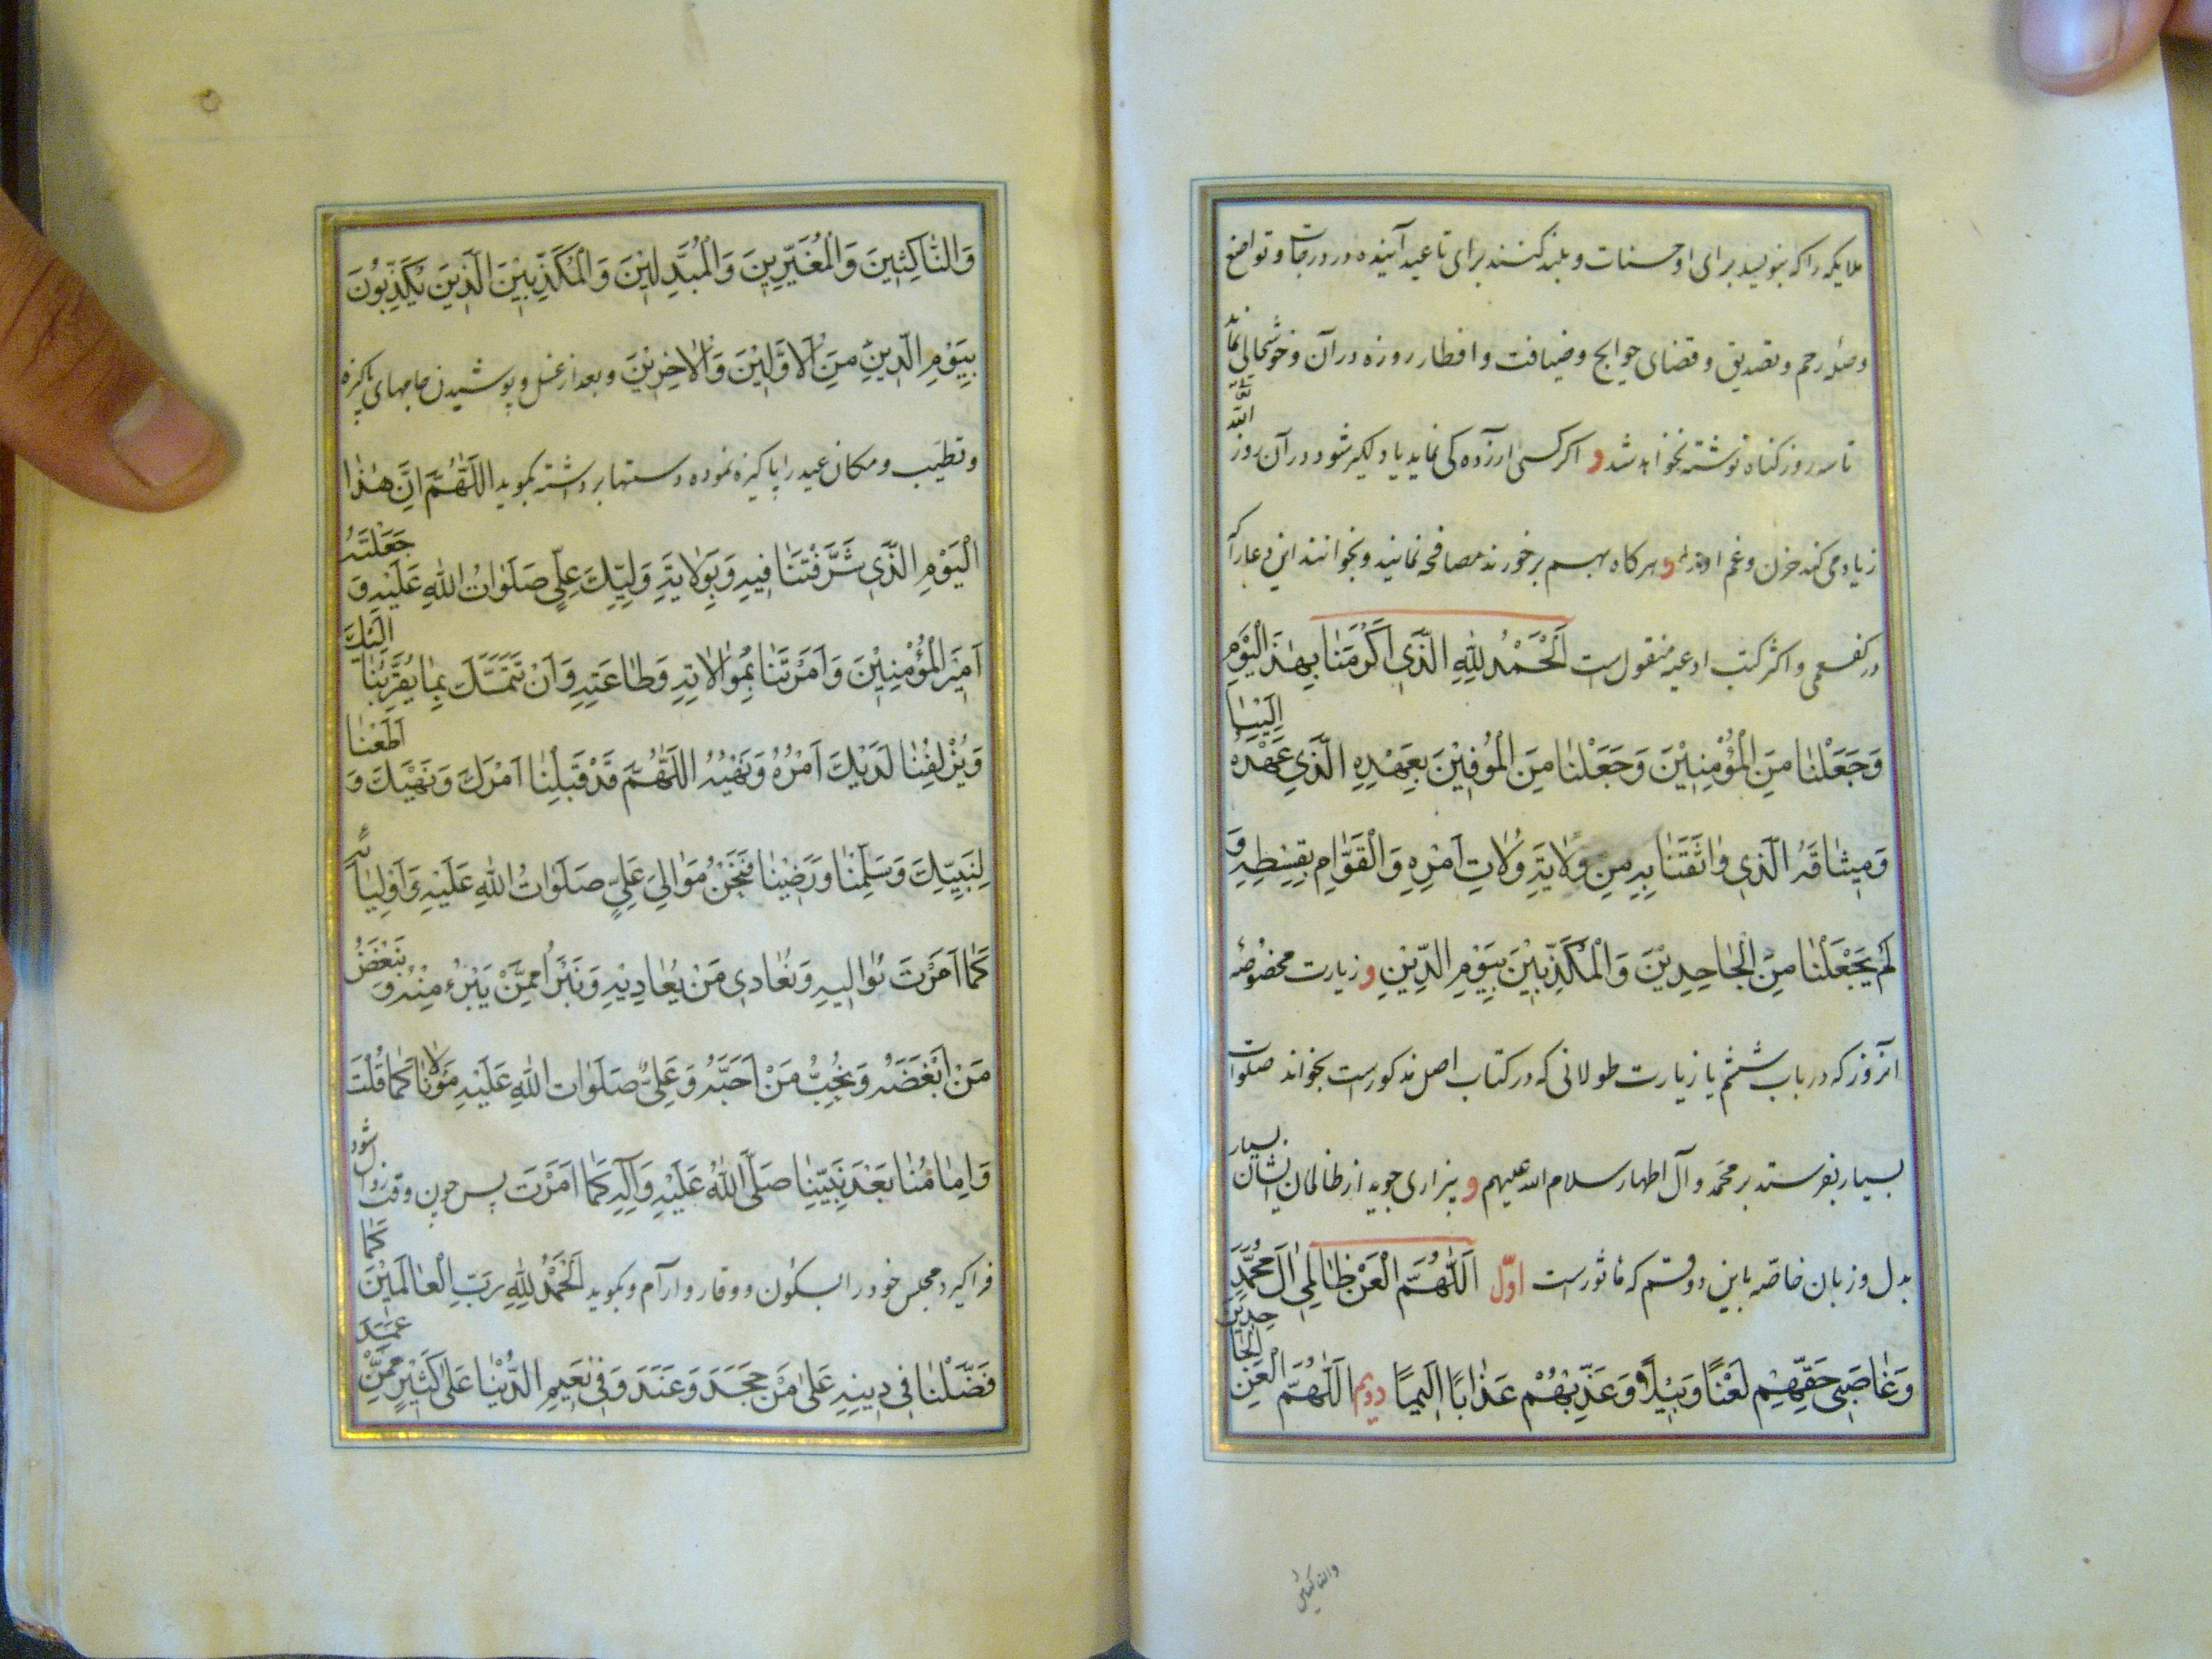 ملایکه را که بنویسید برای او حسنات و بلند کنند برای تا عید آینده در درجات و تواضع
و صلهٔ رحم و تصدیق و قضای حوایج و ضیافت و افطار روزه در آن و خوشحالی نماید
تا سه روز کناه نوشته نخواهد شد و اکر کسی آرزده کی نماید یا دلکیر شود در آن روز الله
زیاد می کند حزن و غم او را و هرکاه بهم برخورند مصافحه نمایند و بخوانند این دعا را که
در کفعمی و اکثر کتب ادعیه منقول است اَلْحَمْدُ لِلّٰهِ الَّذِي اَکْرَمَنَا بِهٰذَا الْیَوْمِ
وَجَعَلْنَا مِنَ الْمُؤْمِنِیْنَ وَجَعَلْنَا مِنَ الْمُوفِیْنَ بِعَهْدِهِ الَّذِي عَهْدَهُ اِلَیْنَا
وَمِیثَاقَهُ الَّذِي وَاثَقَنَا بِهِ مِنْ وِلَایَةِ وُلَاتِ اَمْرِهِ وَالْقَوَّامِ بِقِسْطِهِ وَ
لَمْ یَجْعَلْنَا مِنَ الْجَاحِدِیْنَ وَالْمُکَذِّبِیْنَ بِیَوْمِ الدِّیْنِ و زیارت مخصوصه
آنروز که در باب ششم یا زیارت طولانی که در کتاب اصل مذکور است بخواند صلوات
بسیار بفرستد بر محمد و آل اطهار سلام الله علیهم و بیزاری جوید از ظالمان ایشان بسیار
بدل و زبان خاصّه باین دو قسم که مأثور است اوّل اَللّٰهُمَّ الْعَنْ ظَالِمِي اٰلِ مُحَمَّدٍ
وَغَاصِبِي حَقِّهِمْ لَعْنًا وَبِیْلًا وَعَذِّبْهُمْ عَذَابًا اَلِیمًا دویم اَللّٰهُمَّ الْعَنِ الْجَاحِدِیْنَ
والناکثین
وَالنَّاکِثِیْنَ وَالْمُغَیِّرِیْنَ وَالْمُبَدِّلِیْنَ وَالْمُکَذِّبِیْنَ الَّذِیْنَ یُکَذِّبُوْنَ
بِیَوْمِ الدِّیْنِ مِنَ الْاَوَّلِیْنَ وَالْاٰخِرِیْنَ و بعد از غسل و پوشیدن جامهای پاکیزه
و تطیب و مکان عید را پاکیزه نموده دستها برداشته بگوید اللّٰهُمَّ اِنَّ هٰذَا
الْیَوْمِ الَّذِي شَرَّفْتَنَا فِیهِ وَبِوَلَایَةِ وَلِیِّکَ عَلِيٍّ صَلَوَاتُ اللّٰهِ عَلَیْهِ وَ جَعَلْتَهُ
اَمِیْرَ الْمُؤْمِنِیْنَ وَاَمَرْتَنَا بِمُوَالَاتِهِ وَطَاعَتِهِ وَاَنْ نَتَمَسَّکَ بِمَا یُقَرِّبُنَا اِلَیْکَ
وَیُزْلِفُنَا لَدَیْکَ اَمْرُهُ وَنَهْیُهُ اللّٰهُمَّ قَدْ قَبِلْنَا اَمْرَکَ وَنَهْیَکَ وَ اَطَعْنَا
لِنَبِیِّکَ وَسَلَّمْنَا وَرَضِیْنَا فَنَحْنُ مَوَالِي عَلِيٍّ صَلَوَاتُ اللّٰهِ عَلَیْهِ وَاَوْلِیَائُهُ
کَمَا اَمَرْتَ نُوَالِیهِ وَنُعَادِي مَنْ یُعَادِیْهِ وَنَبْرَأُ مِمَّنْ یَبْرَءُ مِنْهُ وَ نُبْغِضُ
مَنْ اَبْغَضَهُ وَنُحِبُّ مَنْ اَحَبَّهُ وَعَلِيٌّ صَلَوَات اللّٰهِ عَلَیْهِ مَوْلَانَا کَمَا قُلْتَ
وَاِمَامُنَا بَعْدَ نَبِیِّنَا صَلَّی اللّٰهُ عَلَیْهِ وَاٰلِهِ کَمَا اَمَرْتَ پس چون وقت زوال شود
فراگیرد مجلس خود را بسکون و وقار و آرام و بگوید اَلْحَمْدُ لِلّٰهِ رَبِّ الْعَالَمِیْنَ کَمَا
فَضَّلْنَا فِي دِینِهِ عَلٰی مَنْ جَحَدَ وَعَنَدَ وَفِي نَعِیمِ الدُّنْیَا عَلٰی کَثِیْرٍ مِمَّنْ عَمَدَ